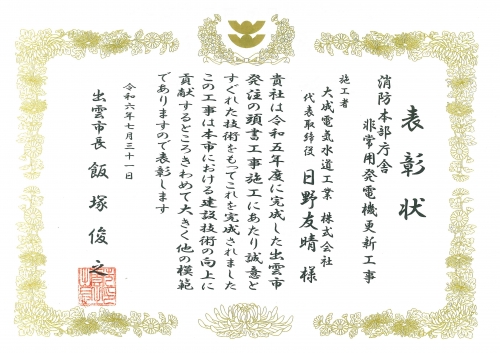 表彰状
消防本部庁舎
非常用発電機更新工事
施工者
大成電気水道工業 株式会社
代表取締役 日野友晴 様
貴社は令和五年度に完成した出雲市
発注の頭書工事施工にあたり誠意と
すぐれた技術をもってこれを完成されました
この工事は本市における建設技術の向上に
貢献するところきわめて大きく他の模範
でありますので表彰します
令和六年七月三十一日
出雲市長 飯塚俊之